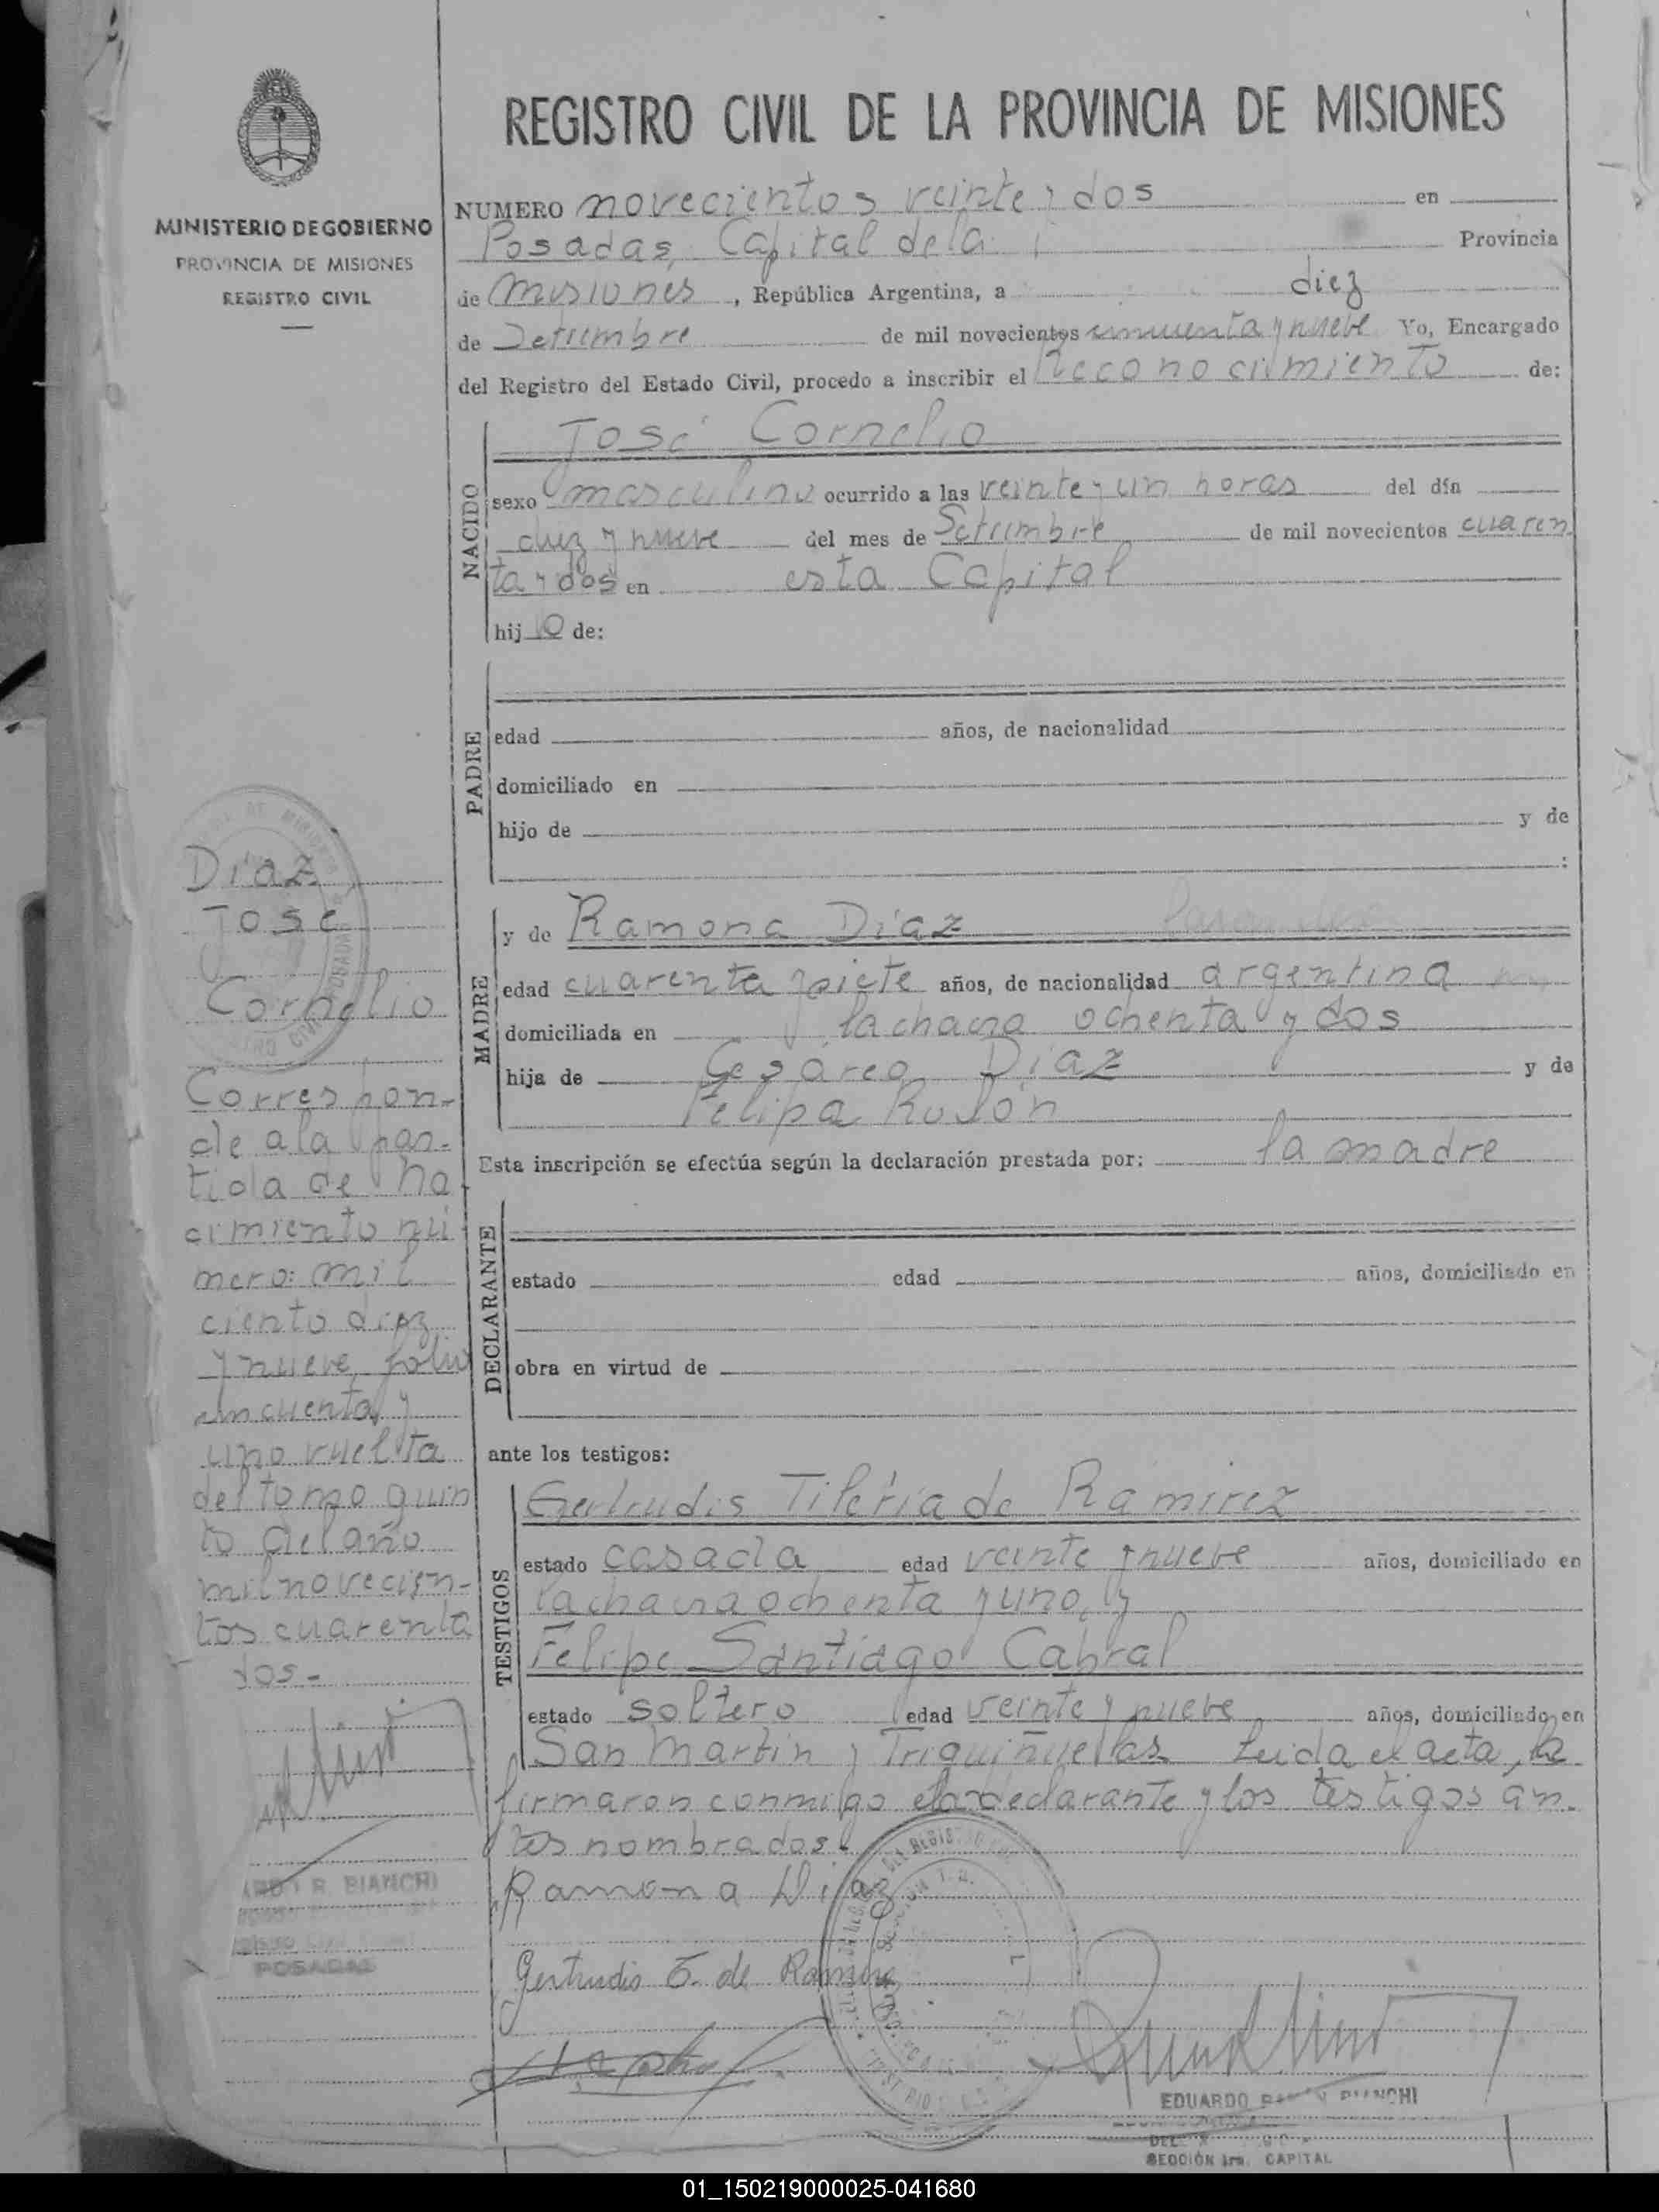 REGISTRO CIVIL DE LA PROVINCIA DE MISIONES
MINISTERIO DE GOBIERNO
PROVINCIA DE MISIONES
REGISTRO CIVIL
NUMERO novecientos veinte y dos en
Posadas, Capital de la Provincia
de Misiones, República Argentina, a diez
de Setiembre de mil novecientos cincuenta y nueve Yo, Encargado
del Registro del Estado Civil, procedo a inscribir el Reconocimiento de:
NACIDO
José Cornelio
sexo masculino ocurrido a las veinte y un horas del día
diez y nueve del mes de Setiembre de mil novecientos cuaren
ta y dos en esta Capital
hijo de:
PADRE
edad años, de nacionalidad
domiciliado en
hijo de y de
:
MADRE
y de Ramona Díaz
edad cuarenta y siete años, de nacionalidad argentina
domiciliada en la chacra ochenta y dos
hija de Cesáreo Díaz y de
Felipa Rolón
Esta inscripción se efectúa según la declaración prestada por: la madre
DECLARANTE
estado edad años, domiciliado en
obra en virtud de
ante los testigos:
TESTIGOS
Gertrudis Tileria de Ramirez
estado casada edad veinte y nueve años, domiciliado en
la chacra ochenta y uno, y
Felipe Santiago Cabral
estado soltero edad veinte y nueve años, domiciliado en
San Martin y Triquiñuelas Leida el acta, la
firmaron conmigo la declarante y los testigos an
tes nombrados.
Ramona Diaz
Gertrudis T. de Ramirez
EDUARDO BIANCHI
SECCIÓN 1ra. CAPITAL
Díaz
José
Cornelio
Correspon-
de a la par-
tida de na
cimiento nú
mero: mil
ciento diez
y nueve, folio
cincuenta y
uno vuelta
del tomo quin
to del año
mil novecien-
tos cuarenta
dos-
R. BIANCHI
POSADAS
01_150219000025-041680